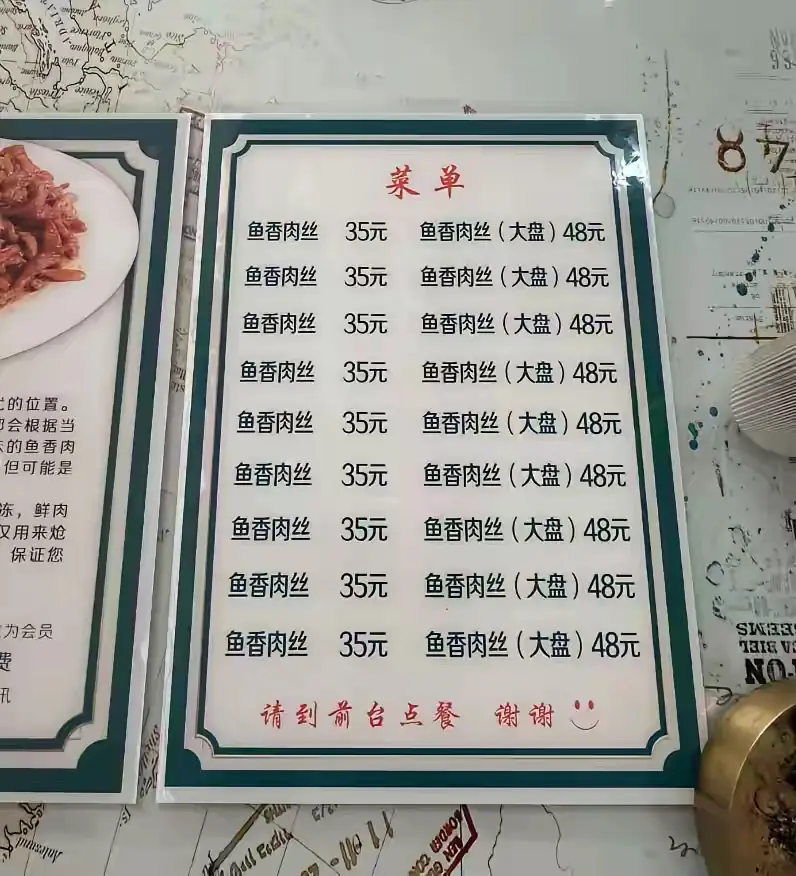 菜单
鱼香肉丝 35元 鱼香肉丝（大盘）48元
鱼香肉丝 35元 鱼香肉丝（大盘）48元
鱼香肉丝 35元 鱼香肉丝（大盘）48元
鱼香肉丝 35元 鱼香肉丝（大盘）48元
鱼香肉丝 35元 鱼香肉丝（大盘）48元
鱼香肉丝 35元 鱼香肉丝（大盘）48元
鱼香肉丝 35元 鱼香肉丝（大盘）48元
鱼香肉丝 35元 鱼香肉丝（大盘）48元
鱼香肉丝 35元 鱼香肉丝（大盘）48元
请到前台点餐 谢谢
的位置。
会根据当
的鱼香肉
但可能是
冻，鲜肉
仅用来炝
保证您
为会员
费
讯